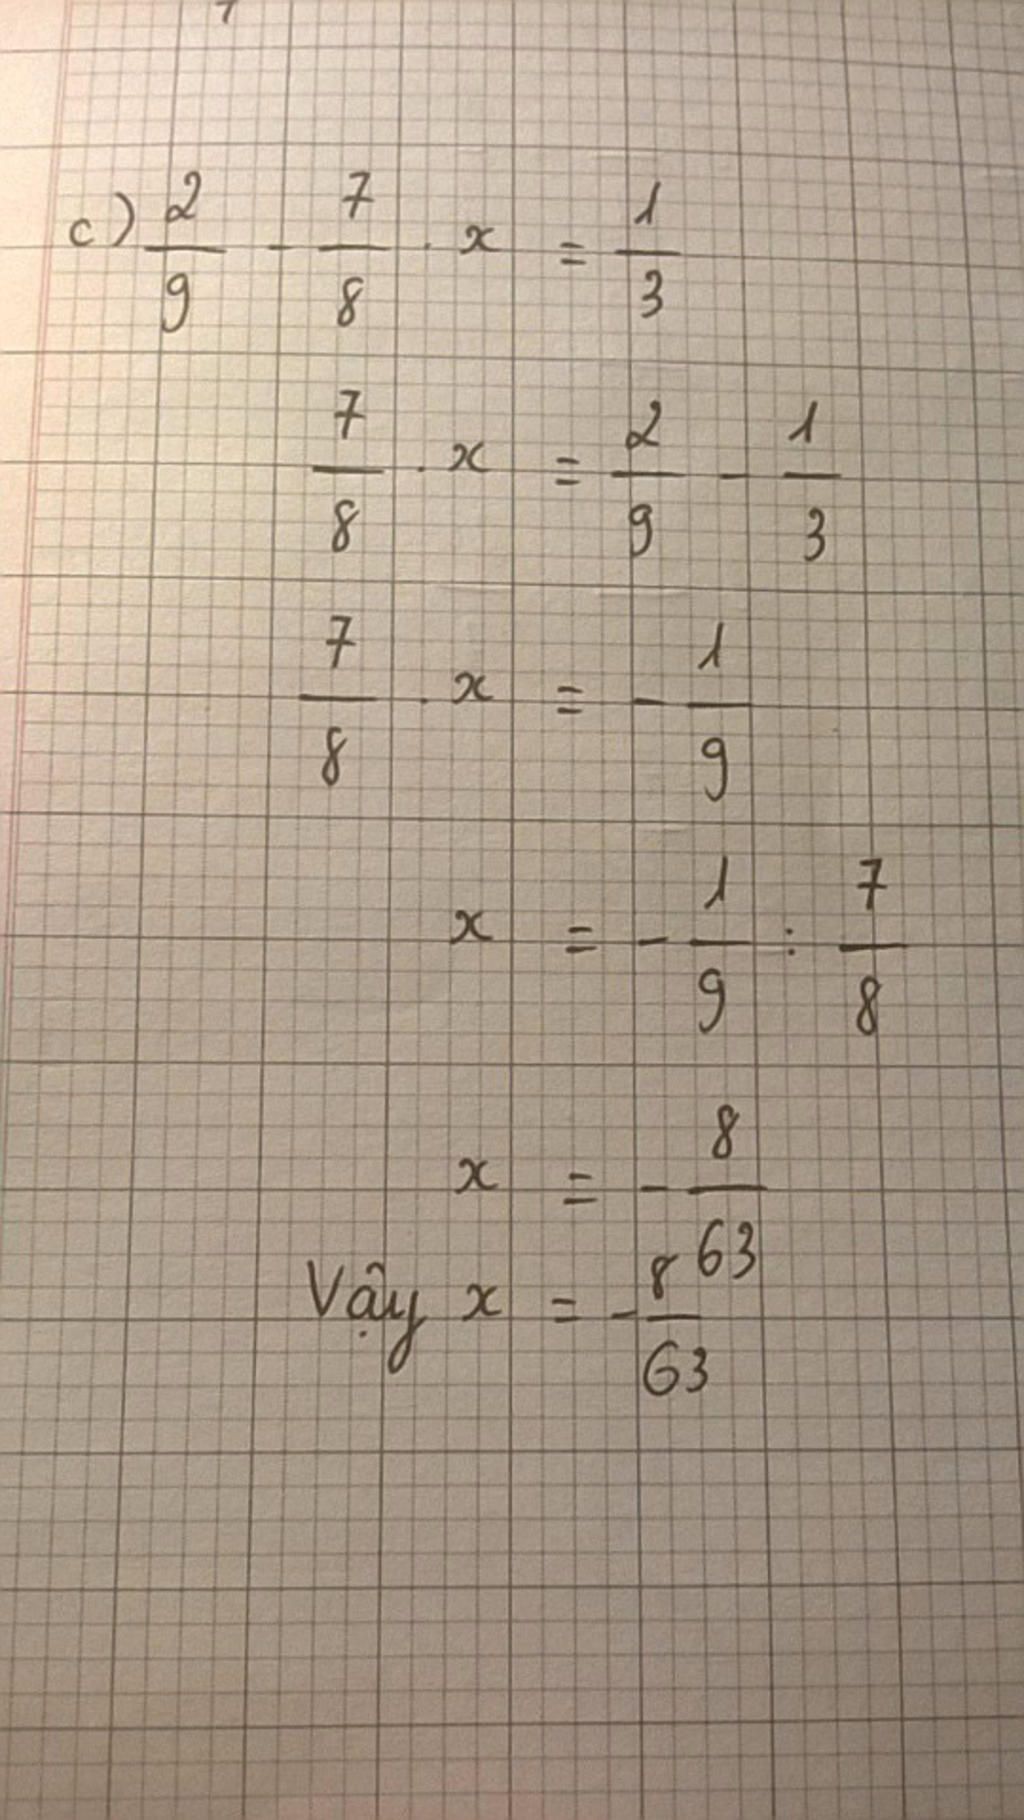 c) 2/9 - 7/8 . x = 1/3
7/8 . x = 2/9 - 1/3
7/8 . x = - 1/9
x = - 1/9 : 7/8
x = - 8/63
Vậy x = - 8/63